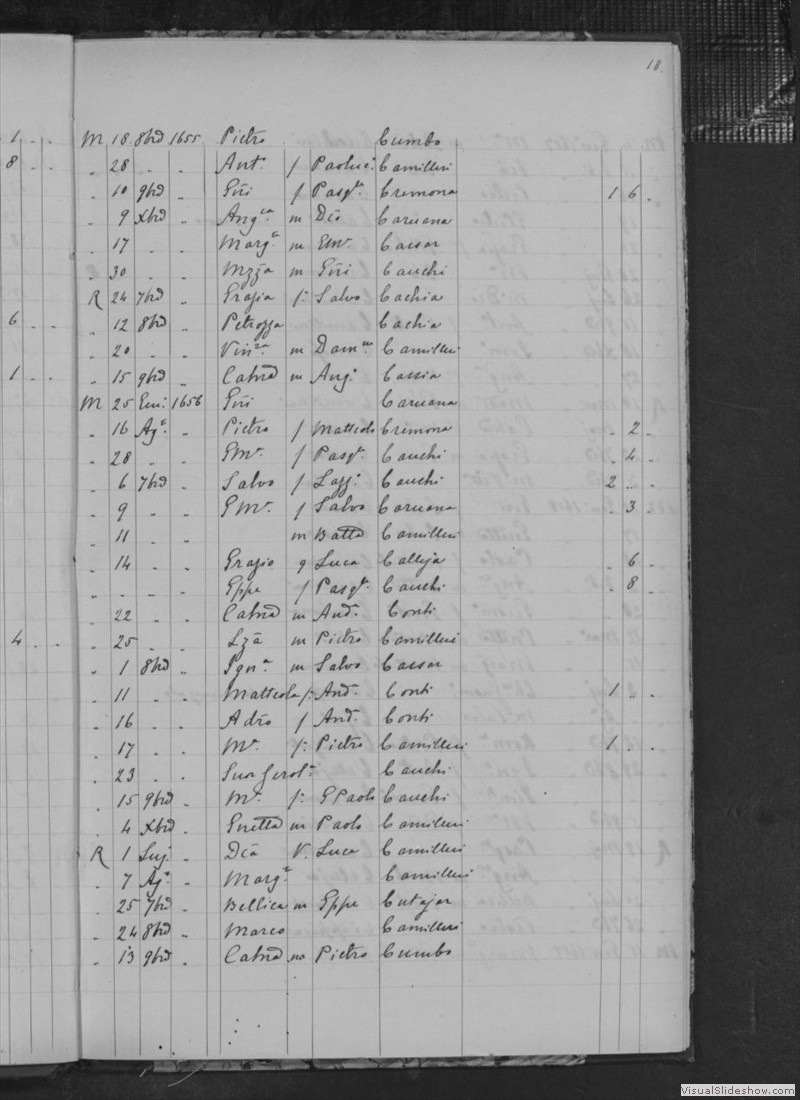 18.
1 . . M 18 8brē 1655 Pietro Cumbo
8 . . „ 28 „ „ Ant.ª f Paoluc.ⁱ Camilleri
„ 10 9brē „ Giñi f Pasq.le Cremona 1 6 .
„ 9 Xbrē „ Ang.ca m Dcō Caruana
„ 17 „ „ Marg.ª m Gmr. Cassar
„ 30 „ „ Mzzā m Giñi Cauchi
R 24 7brē „ Grazia f: Salvo Cachia
6 . . „ 12 8brē „ Petrozza Cachia
„ 20 „ „ Vin.za m Dom.co Camilleri
1 . . „ 15 9brē „ Catnā m Ang.º Cassia
M 25 Gen: 1656 Giñi Caruana
„ 16 Ag.º „ Pietro f Matteolo Cremona . 2 .
„ 28 „ „ Gmr. f Pasq.le Cauchi . 4 .
„ 6 7brē „ Salvo f Lazz.º Cauchi 2 . .
„ 9 „ „ Gmr. f Salvo Caruana . 3 .
„ 11 „ „ m Battā Camilleri
„ 14 „ „ Grazio q Luca Calleja . 6
„ „ „ „ Gppe f Pasq.le Cauchi . 8 .
„ 22 „ „ Catnā m And.ª Conti
4 . . „ 25 „ „ Lzā m Pietro Camilleri
„ 1 8brē „ Ign.ª m Salvo Cassar
„ 11 „ „ Matteola f: And.ª Conti 1 . .
„ 16 „ „ Adro f And.ª Conti
„ 17 „ „ Mr. f: Pietro Camilleri 1 . .
„ 23 „ „ Suor Gerol.ª Cauchi
„ 15 9brē „ Mr. f: GPaolo Cauchi
„ 4 Xbrē „ Gnettā m Paolo Camilleri
R 1 Lug. „ Dcā V. Luca Camilleri
„ 7 Ag.º „ Marg.ª Camilleri
„ 25 7brē „ Bellica m Gppe Cutajar
„ 24 8brē „ Marco Camilleri
„ 13 9brē „ Catnā m Pietro Cumbo
VisualSlideshow.com